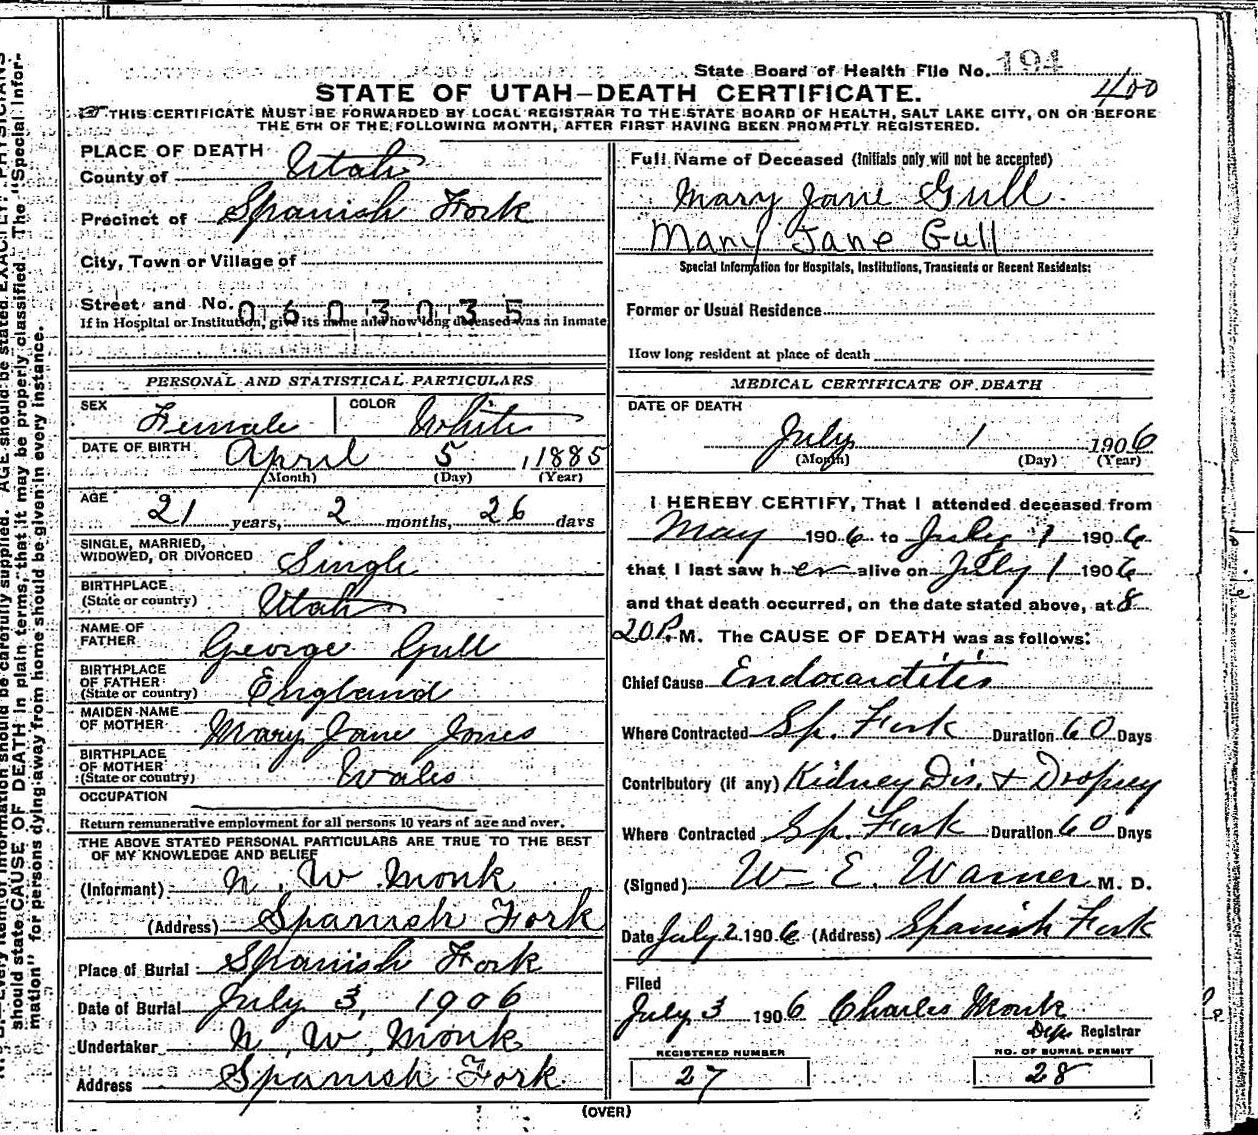 State Board of Health File No. 194
400
STATE OF UTAH—DEATH CERTIFICATE.
THIS CERTIFICATE MUST BE FORWARDED BY LOCAL REGISTRAR TO THE STATE BOARD OF HEALTH, SALT LAKE CITY, ON OR BEFORE
THE 5TH OF THE FOLLOWING MONTH, AFTER FIRST HAVING BEEN PROMPTLY REGISTERED.
PLACE OF DEATH
County of Utah
Precinct of Spanish Fork
City, Town or Village of
Street and No. 0603035
If in Hospital or Institution, give its name and how long deceased was an inmate
PERSONAL AND STATISTICAL PARTICULARS
SEX Female COLOR White
DATE OF BIRTH April 5, 1885
(Month) (Day) (Year)
AGE 21 years, 2 months, 26 days
SINGLE, MARRIED,
WIDOWED, OR DIVORCED Single
BIRTHPLACE
(State or country) Utah
NAME OF
FATHER George Gull
BIRTHPLACE
OF FATHER
(State or country) England
MAIDEN NAME
OF MOTHER Mary Jane Jones
BIRTHPLACE
OF MOTHER
(State or country) Wales
OCCUPATION
Return remunerative employment for all persons 10 years of age and over.
THE ABOVE STATED PERSONAL PARTICULARS ARE TRUE TO THE BEST
OF MY KNOWLEDGE AND BELIEF
(Informant) N. W. Monk
(Address) Spanish Fork
Place of Burial Spanish Fork
Date of Burial July 3, 1906
Undertaker N. W. Monk
Address Spanish Fork
Full Name of Deceased (Initials only will not be accepted)
Mary Jane Gull
Mary Jane Gull
Special Information for Hospitals, Institutions, Transients or Recent Residents:
Former or Usual Residence
How long resident at place of death
MEDICAL CERTIFICATE OF DEATH
DATE OF DEATH
July 1 1906
(Month) (Day) (Year)
I HEREBY CERTIFY, That I attended deceased from
May 1906 to July 1 1906
that I last saw her alive on July 1 1906
and that death occurred, on the date stated above, at 8
20 P. M. The CAUSE OF DEATH was as follows:
Chief Cause Endocarditis
Where Contracted Sp. Fork Duration 60 Days
Contributory (if any) Kidney Dis. & Dropsey
Where Contracted Sp. Fork Duration 60 Days
(Signed) W. E. Warner M. D.
Date July 2 1906 (Address) Spanish Fork
Filed
July 3 1906 Charles Monk
Dep. Registrar
REGISTERED NUMBER
27
NO. OF BURIAL PERMIT
28
(OVER)
should state CAUSE OF DEATH in plain terms, that it may be properly classified. The "Special Infor-
mation" for persons dying away from home should be given in every instance.